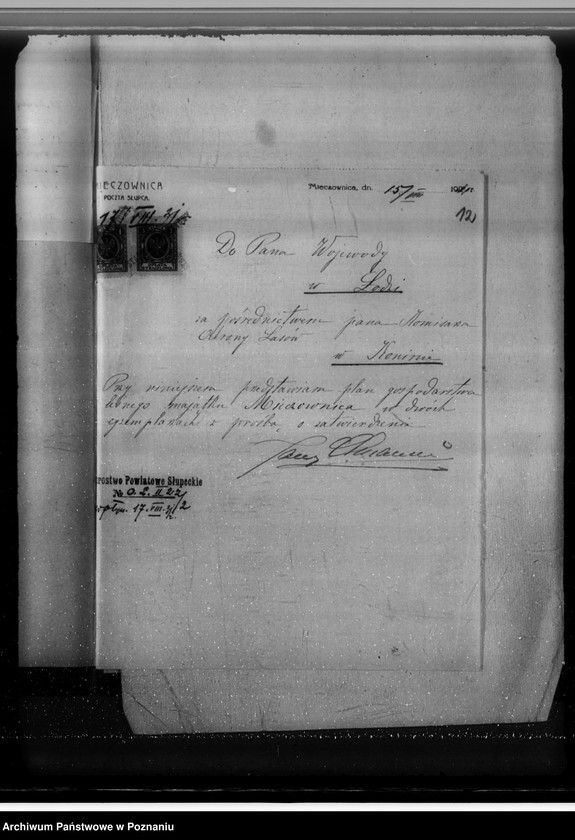 IECZOWNICA
POCZTA SŁUPCA.
Mieczownica, dn. 15/VIII 192
17/VIII.
12
Do Pana Wojewody
w Łodzi
za pośrednictwem pana Komisarza
Ochrony Lasów
w Koninie
Przy niniejszem przedstawiam plan gospodarstwa
leśnego majątku Mieczownica w dwóch
egzemplarzach z prośbą o zatwierdzenie
rostwo Powiatowe Słupeckie
№ O.L. II 22/2
wpłyn. 17.VIII.
Archiwum Państwowe w Poznaniu